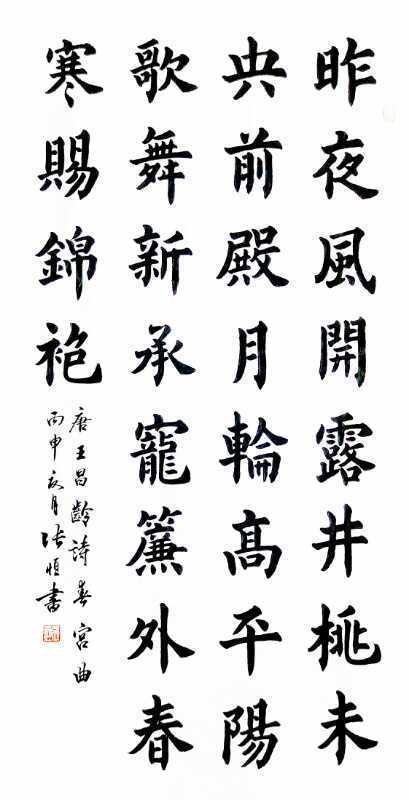 昨夜風開露井桃未
央前殿月輪高平陽
歌舞新承寵簾外春
寒賜錦袍
唐王昌齡詩春宮曲
丙申夏月张恒書